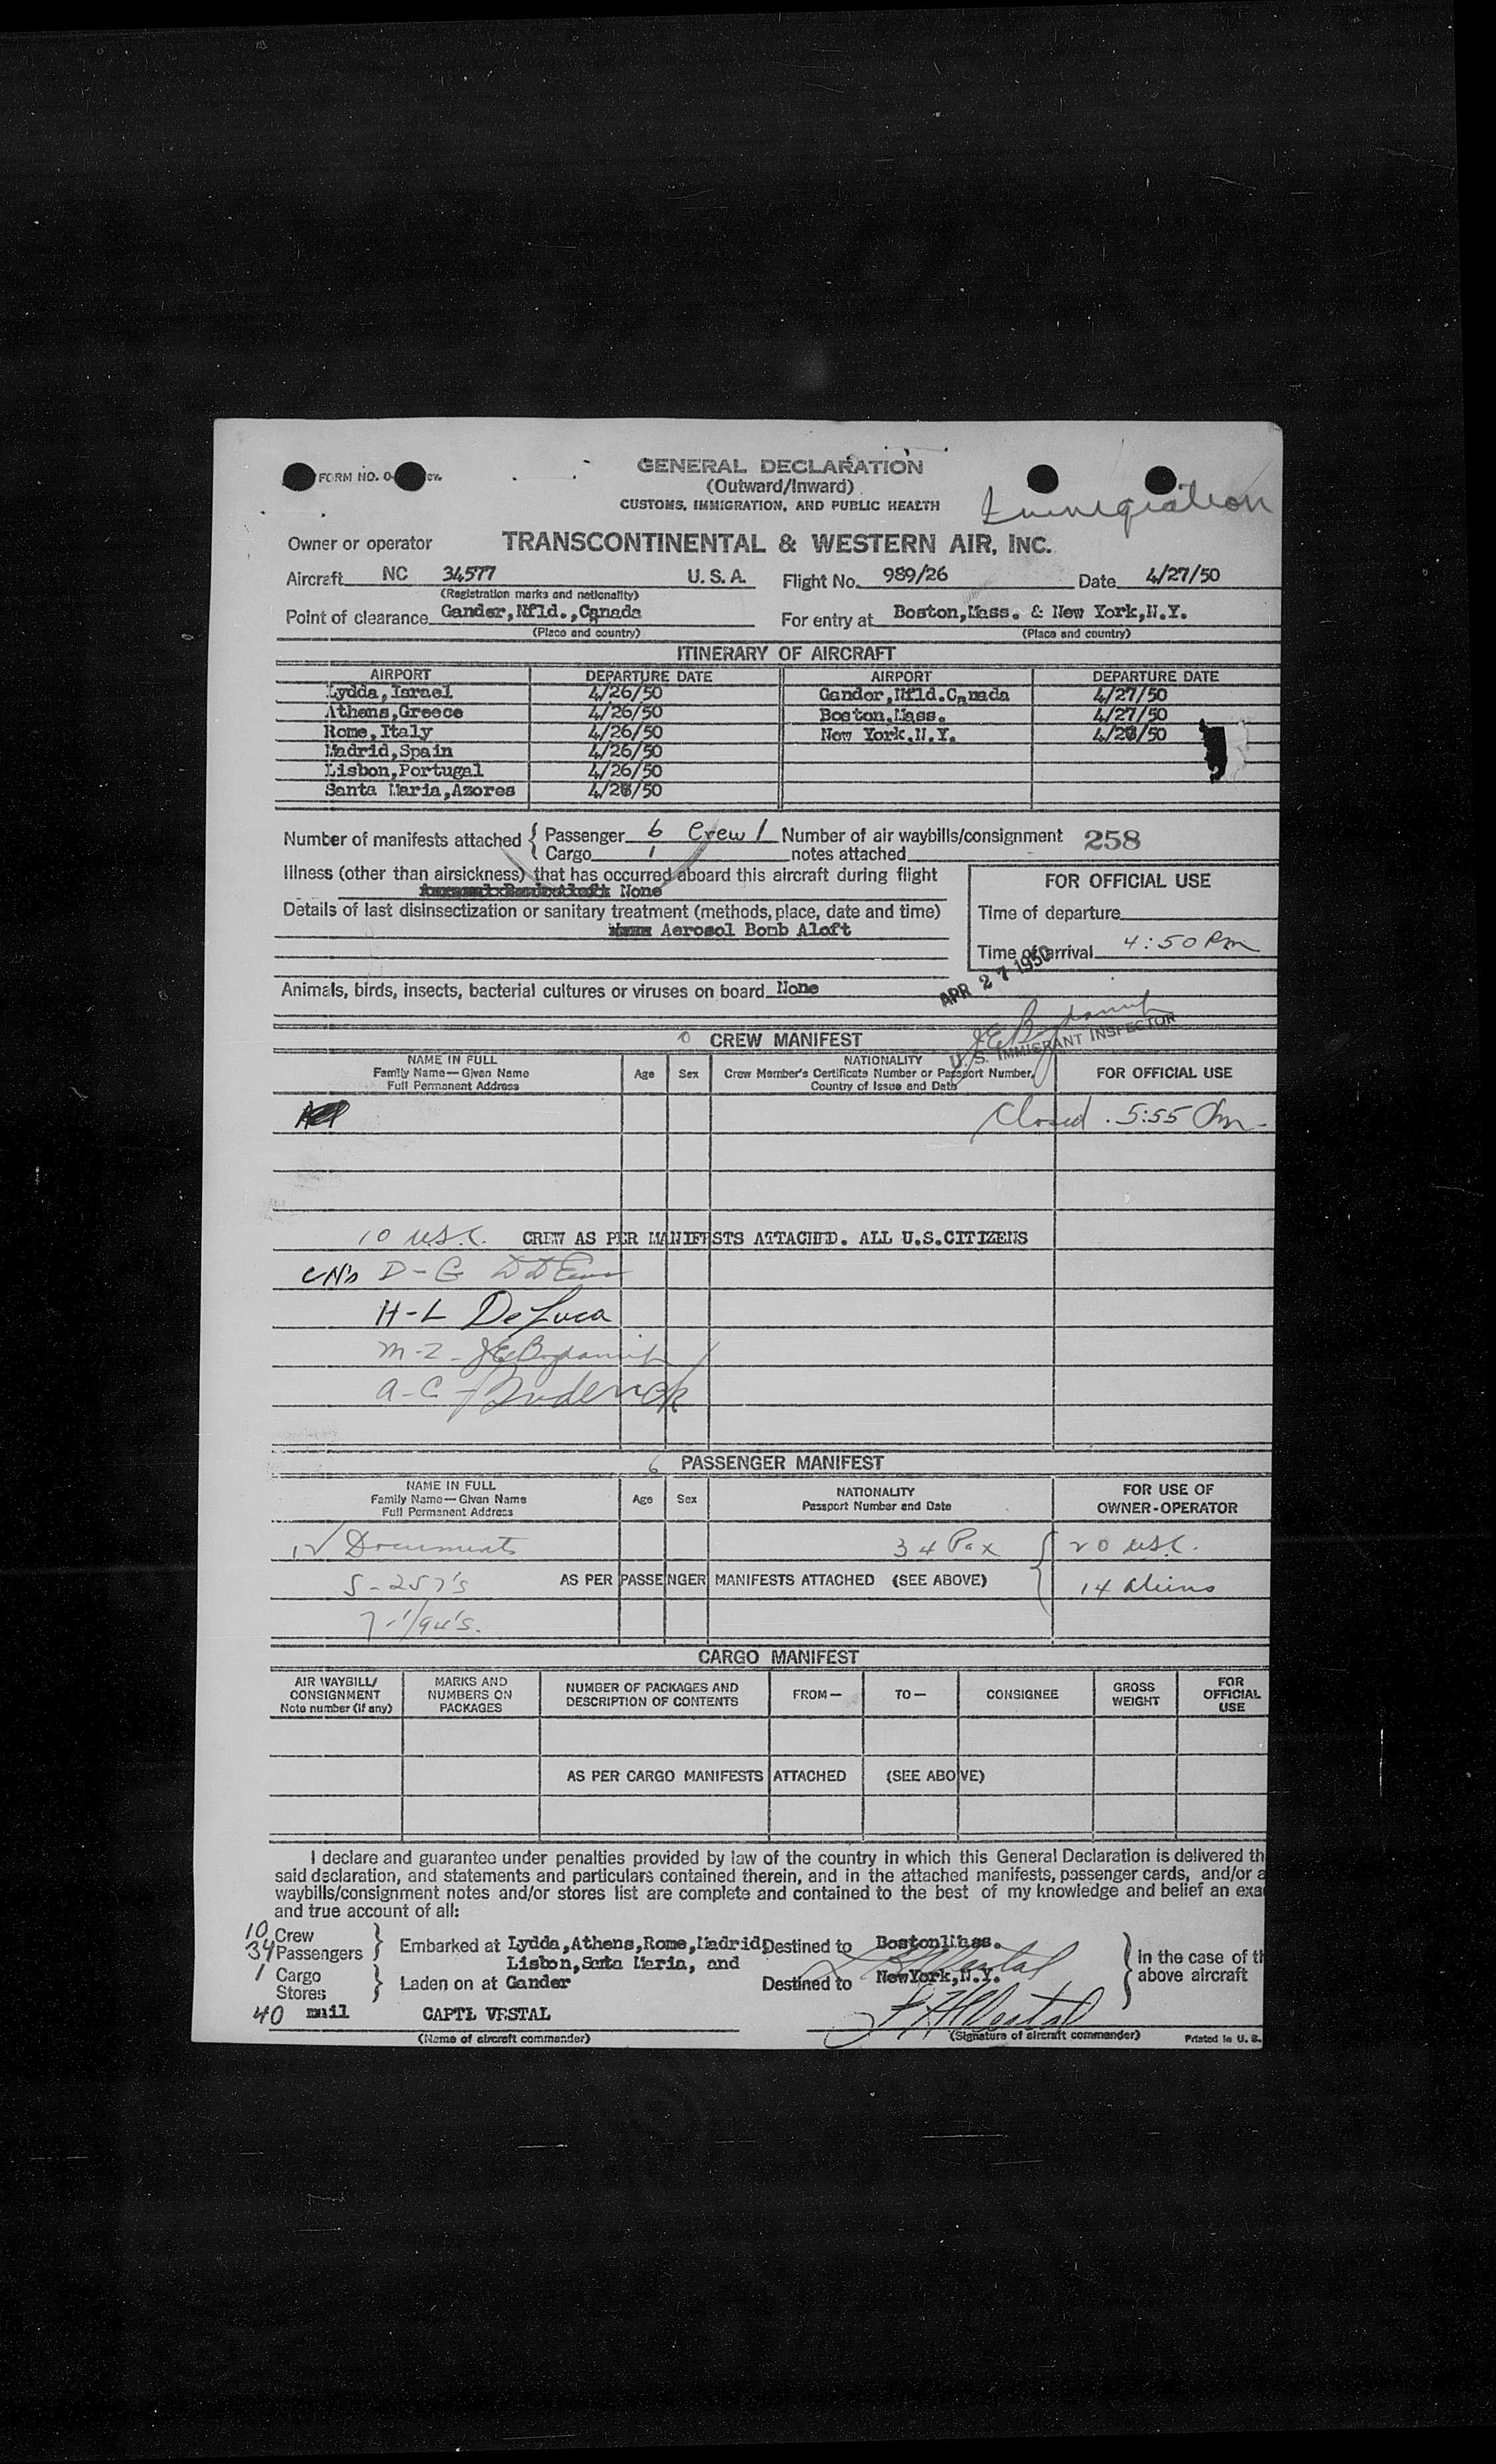 FORM NO. O-
GENERAL DECLARATION
(Outward/Inward)
CUSTOMS, IMMIGRATION, AND PUBLIC HEALTH
Immigration
Owner or operator TRANSCONTINENTAL & WESTERN AIR, INC.
Aircraft NC 34577 U.S.A. Flight No. 989/26 Date 4/27/50
(Registration marks and nationality)
Point of clearance Gander,Nfld.,Canada For entry at Boston,Mass. & New York,N.Y.
(Place and country) (Place and country)
ITINERARY OF AIRCRAFT
AIRPORT DEPARTURE DATE AIRPORT DEPARTURE DATE
Lydda,Israel 4/26/50 Gander,Nfld.Canada 4/27/50
Athens,Greece 4/26/50 Boston,Mass. 4/27/50
Rome,Italy 4/26/50 New York,N.Y. 4/28/50
Madrid,Spain 4/26/50
Lisbon,Portugal 4/26/50
Santa Maria,Azores 4/26/50
Number of manifests attached { Passenger 6 Crew 1 Number of air waybills/consignment 258
Cargo 1 notes attached
Illness (other than airsickness) that has occurred aboard this aircraft during flight
None
FOR OFFICIAL USE
Details of last disinsectization or sanitary treatment (methods, place, date and time)
Time of departure
Aerosol Bomb Aloft
Time of arrival 4:50 Pm
APR 27 1950
Animals, birds, insects, bacterial cultures or viruses on board None
U. S. IMMIGRANT INSPECTOR
CREW MANIFEST
NAME IN FULL
Family Name—Given Name
Full Permanent Address
Age Sex
NATIONALITY
Crew Member's Certificate Number or Passport Number,
Country of Issue and Date
FOR OFFICIAL USE
Closed . 5:55 Pm.
10 USC. CREW AS PER MANIFESTS ATTACHED. ALL U.S.CITIZENS
D-G
H-L DeLuca
M-Z -
A-C - Broderick
6 PASSENGER MANIFEST
NAME IN FULL
Family Name—Given Name
Full Permanent Address
Age Sex
NATIONALITY
Passport Number and Date
FOR USE OF
OWNER-OPERATOR
12 Documents 34 Pax { 20 USC.
5-257's AS PER PASSENGER MANIFESTS ATTACHED (SEE ABOVE) 14 Aliens
7-1/94's.
CARGO MANIFEST
AIR WAYBILL/
CONSIGNMENT
Note number (if any)
MARKS AND
NUMBERS ON
PACKAGES
NUMBER OF PACKAGES AND
DESCRIPTION OF CONTENTS
FROM—
TO—
CONSIGNEE
GROSS
WEIGHT
FOR
OFFICIAL
USE
AS PER CARGO MANIFESTS ATTACHED (SEE ABOVE)
I declare and guarantee under penalties provided by law of the country in which this General Declaration is delivered th
said declaration, and statements and particulars contained therein, and in the attached manifests, passenger cards, and/or a
waybills/consignment notes and/or stores list are complete and contained to the best of my knowledge and belief an exa
and true account of all:
10 Crew
34 Passengers } Embarked at Lydda,Athens,Rome,Madrid, Destined to Boston Mass.
Lisbon,Santa Maria, and
1 Cargo
Stores } Laden on at Gander Destined to New York,N.Y.
} In the case of th
above aircraft
40 mail CAPTL VESTAL
(Name of aircraft commander) (Signature of aircraft commander) Printed in U. S.